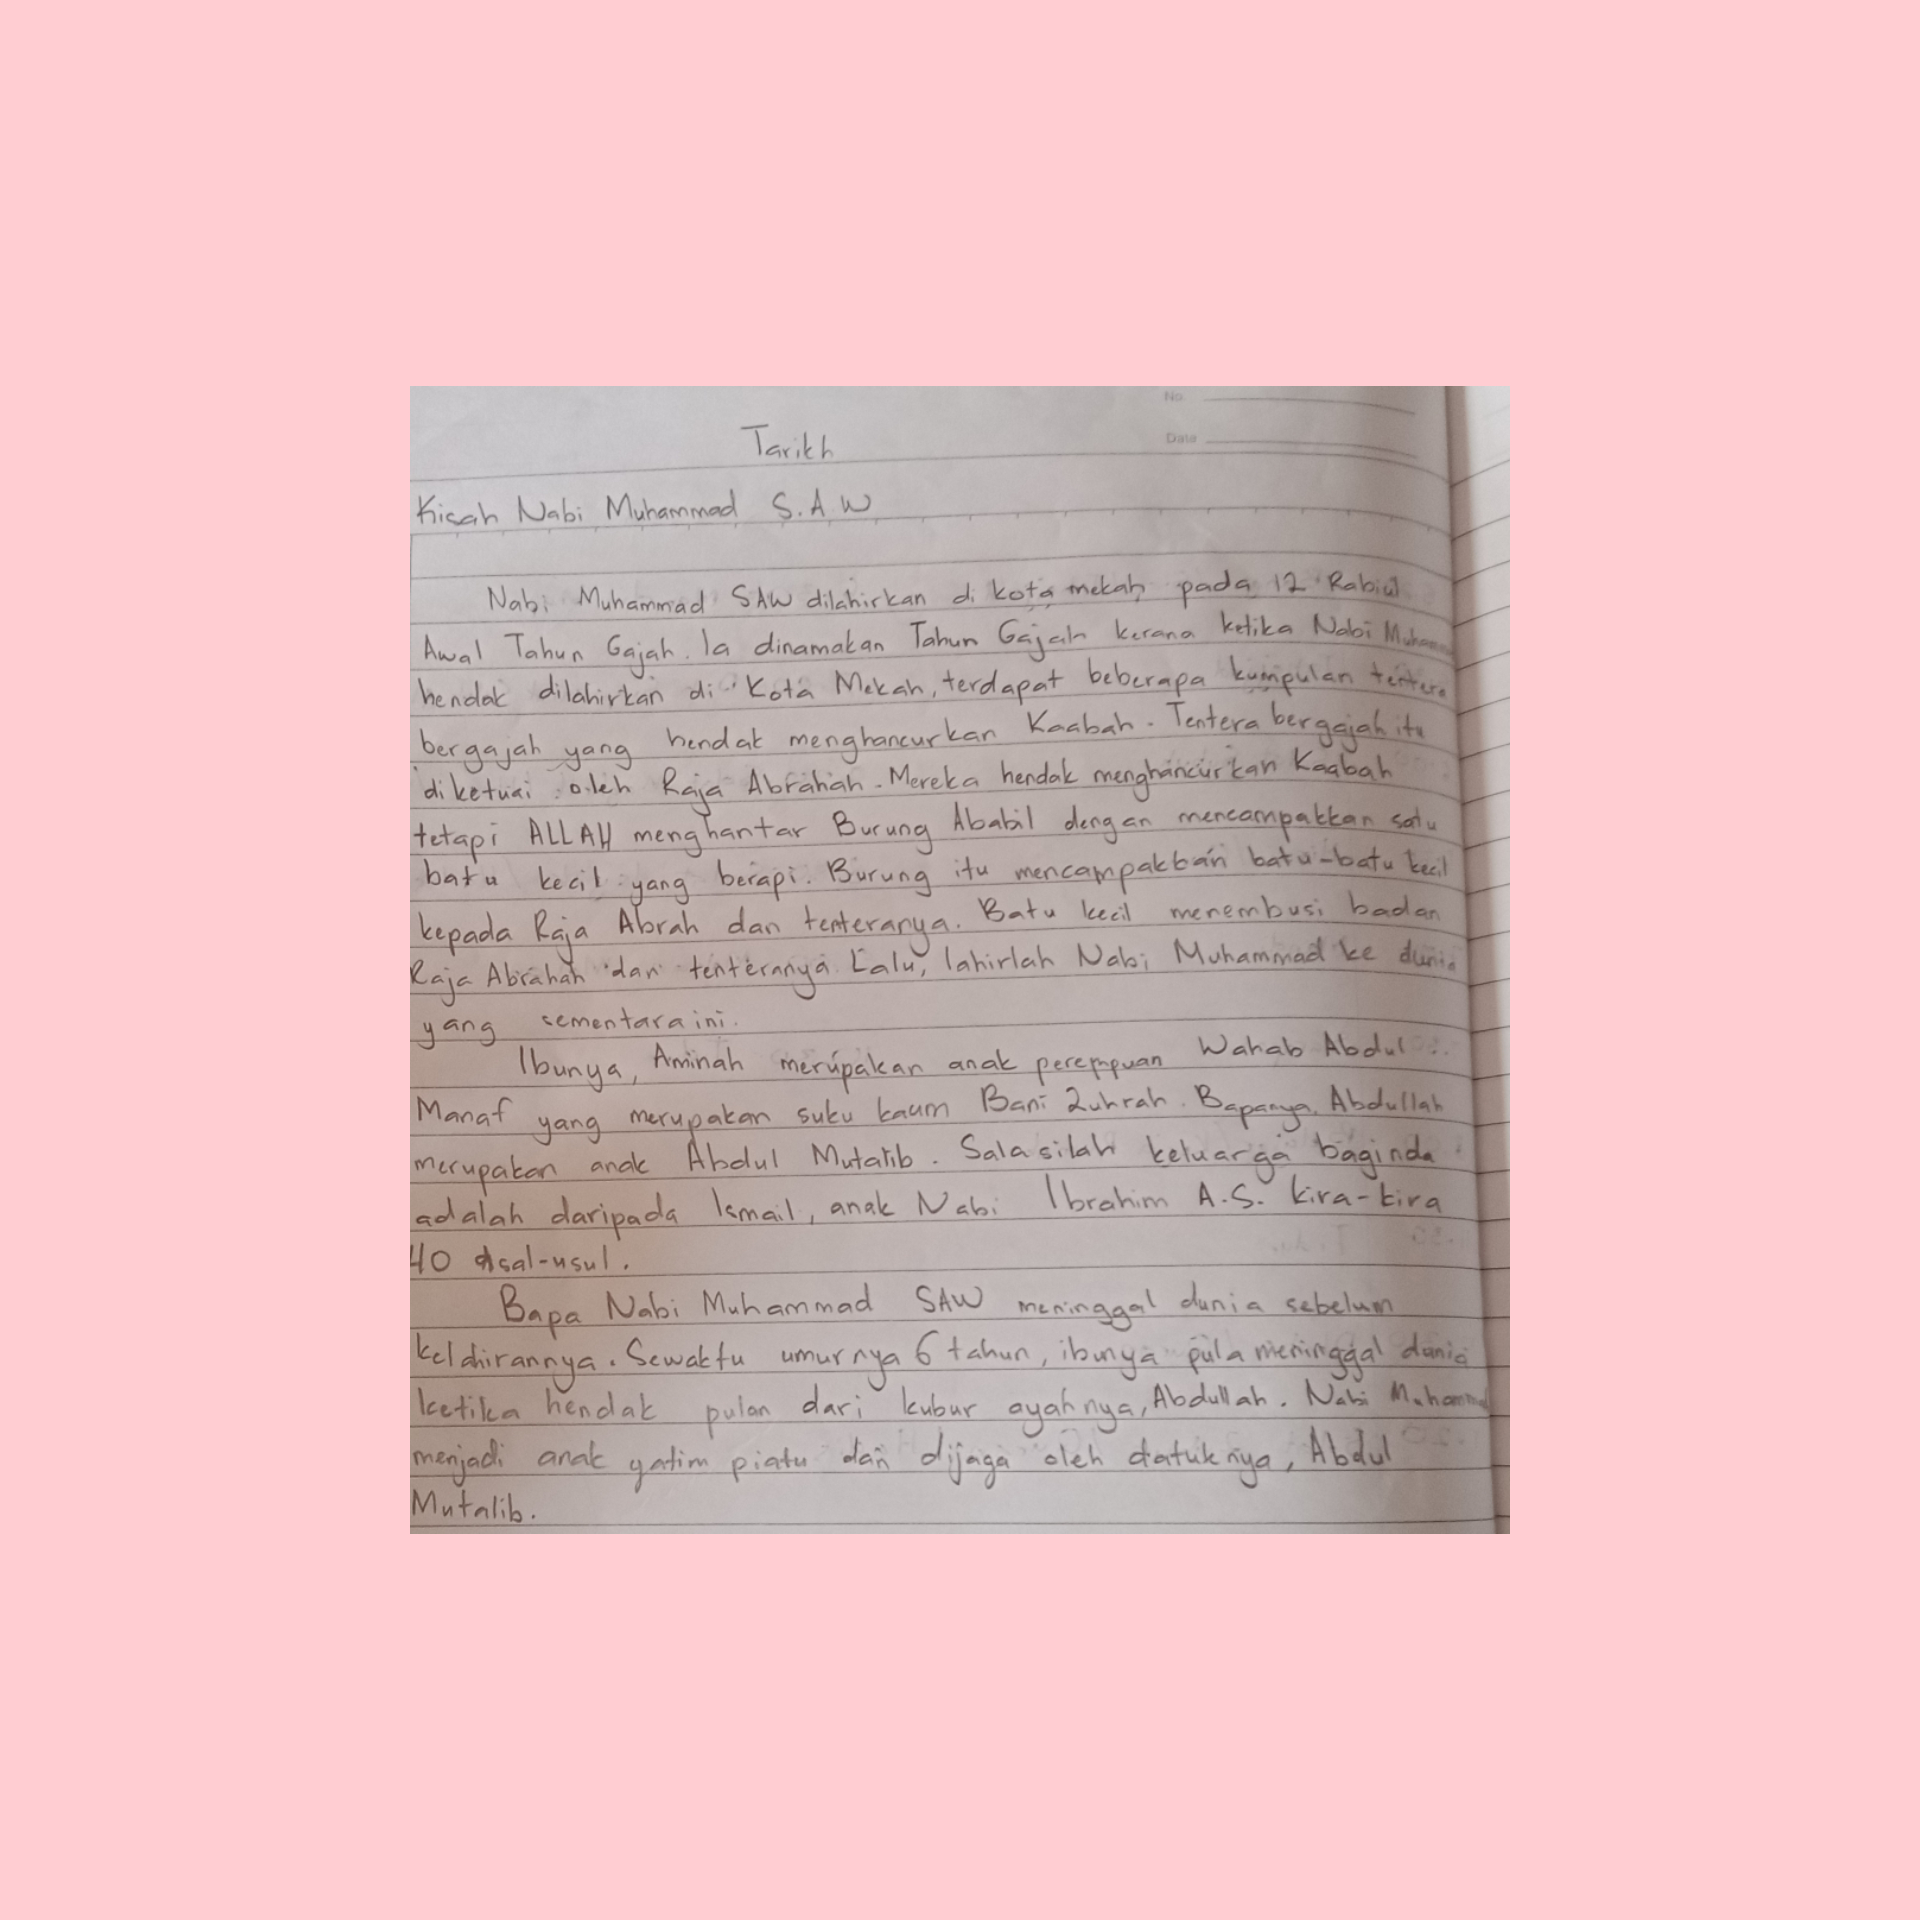 No.
Date
Tarikh
Kisah Nabi Muhammad S.A.W
Nabi Muhammad SAW dilahirkan di kota mekah pada 12 Rabiul
Awal Tahun Gajah. Ia dinamakan Tahun Gajah kerana ketika Nabi
hendak dilahirkan di Kota Mekah, terdapat beberapa kumpulan tentera
bergajah yang hendak menghancurkan Kaabah. Tentera bergajah itu
diketuai oleh Raja Abrahah. Mereka hendak menghancurkan Kaabah
tetapi ALLAH menghantar Burung Ababil dengan mencampakkan satu
batu kecil yang berapi. Burung itu mencampakkan batu-batu kecil
kepada Raja Abrah dan tenteranya. Batu kecil menembusi badan
Raja Abrahah dan tenteranya. Lalu, lahirlah Nabi Muhammad ke dunia
yang sementara ini.
Ibunya, Aminah merupakan anak perempuan Wahab Abdul
Manaf yang merupakan suku kaum Bani Zuhrah. Bapanya, Abdullah
merupakan anak Abdul Mutalib. Salasilah keluarga baginda
adalah daripada Ismail, anak Nabi Ibrahim A.S. kira-kira
40 asal-usul.
Bapa Nabi Muhammad SAW meninggal dunia sebelum
kelahirannya. Sewaktu umurnya 6 tahun, ibunya pula meninggal dunia
ketika hendak pulan dari kubur ayahnya, Abdullah. Nabi
menjadi anak yatim piatu dan dijaga oleh datuknya, Abdul
Mutalib.